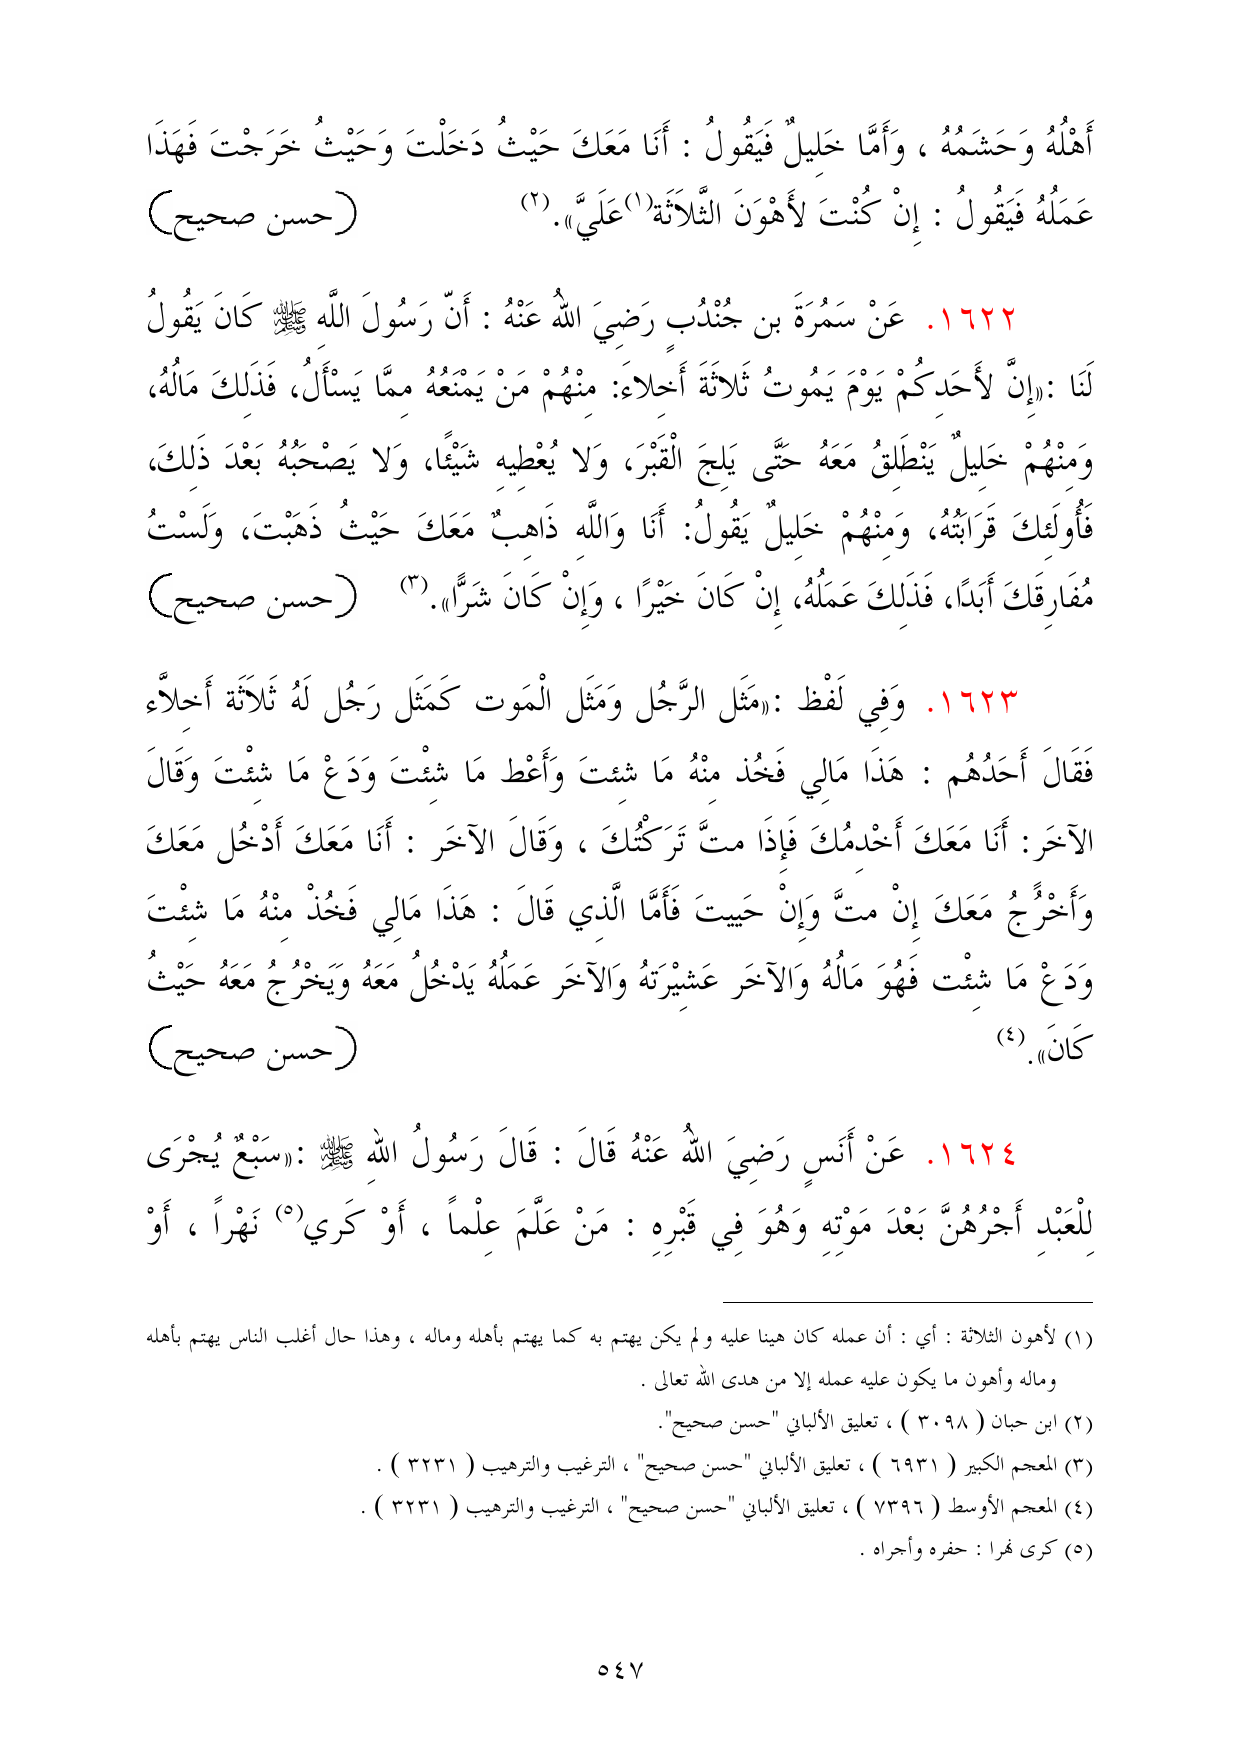 أَهْلُهُ وَحَشَمُهُ ، وَأَمَّا خَلِيلٌ فَيَقُولُ : أَنَا مَعَكَ حَيْثُ دَخَلْتَ وَحَيْثُ خَرَجْتَ فَهَذَا
عَمَلُهُ فَيَقُولُ : إِنْ كُنْتَ لأَهْوَنَ الثَّلاَثَة(١) عَلَيَّ».(٢) (حسن صحيح)
١٦٢٢. عَنْ سَمُرَةَ بن جُنْدُبٍ رَضِيَ اللهُ عَنْهُ : أَنّ رَسُولَ اللَّهِ ﷺ كَانَ يَقُولُ
لَنَا :«إِنَّ لأَحَدِكُمْ يَوْمَ يَمُوتُ ثَلاثَةَ أَخِلاءَ: مِنْهُمْ مَنْ يَمْنَعُهُ مِمَّا يَسْأَلُ، فَذَلِكَ مَالُهُ،
وَمِنْهُمْ خَلِيلٌ يَنْطَلِقُ مَعَهُ حَتَّى يَلِجَ الْقَبْرَ، وَلا يُعْطِيهِ شَيْئًا، وَلا يَصْحَبُهُ بَعْدَ ذَلِكَ،
فَأُولَئِكَ قَرَابَتُهُ، وَمِنْهُمْ خَلِيلٌ يَقُولُ: أَنَا وَاللَّهِ ذَاهِبٌ مَعَكَ حَيْثُ ذَهَبْتَ، وَلَسْتُ
مُفَارِقَكَ أَبَدًا، فَذَلِكَ عَمَلُهُ، إِنْ كَانَ خَيْرًا ، وَإِنْ كَانَ شَرًّا».(٣) (حسن صحيح)
١٦٢٣. وَفِي لَفْظ :«مَثَل الرَّجُل وَمَثَل الْمَوت كَمَثَل رَجُل لَهُ ثَلاَثَة أَخِلاَّء
فَقَالَ أَحَدُهُم : هَذَا مَالِي فَخُذ مِنْهُ مَا شِئتَ وَأَعْط مَا شِئْتَ وَدَعْ مَا شِئْتَ وَقَالَ
الآخَر: أَنَا مَعَكَ أَخْدِمُكَ فَإِذَا متَّ تَرَكْتُكَ ، وَقَالَ الآخَر : أَنَا مَعَكَ أَدْخُل مَعَكَ
وَأَخْرُجُ مَعَكَ إِنْ متَّ وَإِنْ حَييتَ فَأَمَّا الَّذِي قَالَ : هَذَا مَالِي فَخُذْ مِنْهُ مَا شِئْتَ
وَدَعْ مَا شِئْت فَهُوَ مَالُهُ وَالآخَر عَشِيْرَتهُ وَالآخَر عَمَلُهُ يَدْخُلُ مَعَهُ وَيَخْرُجُ مَعَهُ حَيْثُ
كَانَ».(٤) (حسن صحيح)
١٦٢٤. عَنْ أَنَسٍ رَضِيَ اللهُ عَنْهُ قَالَ : قَالَ رَسُولُ اللهِ ﷺ :«سَبْعٌ يُجْرَى
لِلْعَبْدِ أَجْرُهُنَّ بَعْدَ مَوْتِهِ وَهُوَ فِي قَبْرِهِ : مَنْ عَلَّمَ عِلْماً ، أَوْ كَرِي(٥) نَهْراً ، أَوْ
(١) لأهون الثلاثة : أي : أن عمله كان هينا عليه ولم يكن يهتم به كما يهتم بأهله وماله ، وهذا حال أغلب الناس يهتم بأهله
وماله وأهون ما يكون عليه عمله إلا من هدى الله تعالى .
(٢) ابن حبان ( ٣٠٩٨ ) ، تعليق الألباني "حسن صحيح".
(٣) المعجم الكبير ( ٦٩٣١ ) ، تعليق الألباني "حسن صحيح" ، الترغيب والترهيب ( ٣٢٣١ ) .
(٤) المعجم الأوسط ( ٧٣٩٦ ) ، تعليق الألباني "حسن صحيح" ، الترغيب والترهيب ( ٣٢٣١ ) .
(٥) كرى نهرا : حفره وأجراه .
٥٤٧